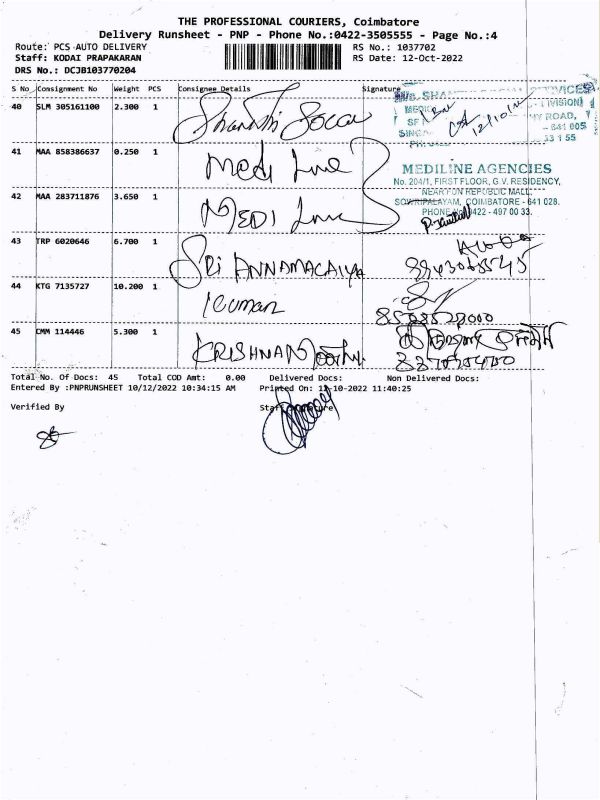 THE PROFESSIONAL COURIERS, Coimbatore
Delivery Runsheet - PNP - Phone No.:0422-3505555 - Page No.:4
Route: PCS AUTO DELIVERY
RS No.: 1037702
Staff: KODAI PRAPAKARAN
RS Date: 12-Oct-2022
DRS No.: DCJB103770204
S No Consignment No Weight PCS Consignee Details Signature
40 SLM 305161100 2.300 1 Shanthi
12/10/22
ROAD,
- 641 005
41 MAA 858386637 0.250 1 Medi Line
MEDILINE AGENCIES
No. 204/1, FIRST FLOOR, G.V. RESIDENCY,
NEAR FUN REPUBLIC MALL
SOWRIPALAYAM, COIMBATORE - 641 028.
PHONE: 0422 - 497 00 33.
42 MAA 283711876 3.650 1 MEDI Line
43 TRP 6020646 6.700 1 SRI ANNAMACAIYA
44 KTG 7135727 10.200 1 Kumar
45 CMM 114446 5.300 1 KRISHNAMoorthy
Total No. Of Docs: 45 Total COD Amt: 0.00 Delivered Docs: Non Delivered Docs:
Entered By :PNPRUNSHEET 10/12/2022 10:34:15 AM Printed On: 12-10-2022 11:40:25
Verified By
Staff Signature